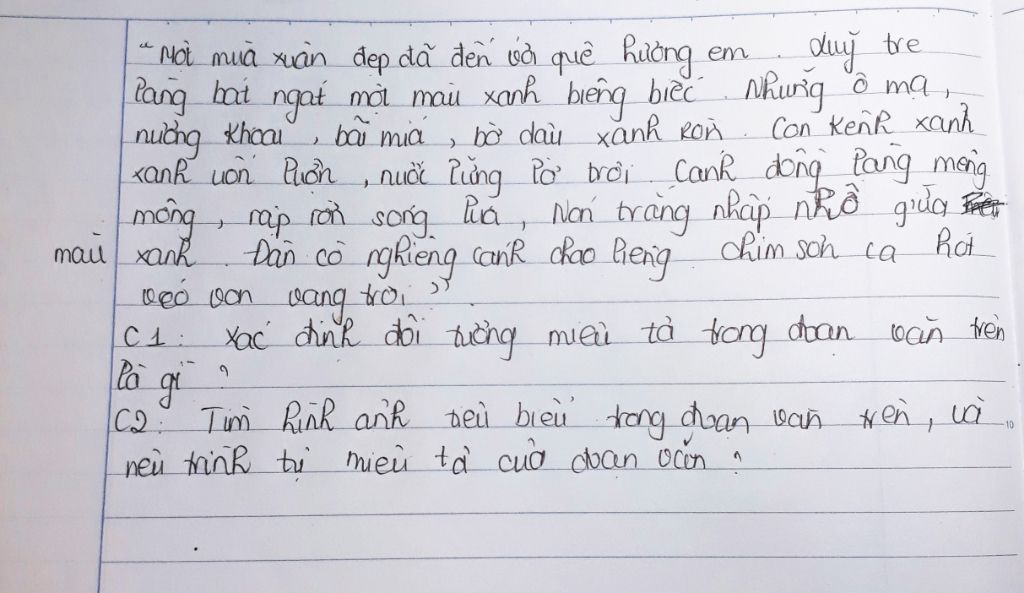 "Một mùa xuân đẹp đã đến với quê hương em. Luỹ tre
làng bát ngát một màu xanh biêng biếc. Những ô mạ,
nương khoai, bãi mía, bờ dâu xanh rờn. Con kênh xanh
xanh uốn lượn, nước lửng lờ trôi. Cánh đồng làng mênh
mông, rập rờn sóng lúa, Nón trắng nhấp nhô giữa
màu xanh. Đàn cò nghiêng cánh chao liệng. Chim sơn ca hót
véo von vang trời."
C1: Xác định đối tượng miêu tả trong đoạn văn trên
là gì?
C2: Tìm hình ảnh tiêu biểu trong đoạn văn trên, và
nêu trình tự miêu tả của đoạn văn?
10